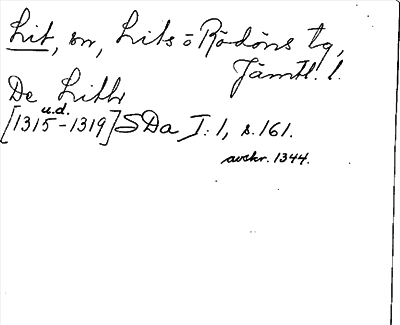 Lit, sn, Lits o Rödöns tg,
Jämtl. l.
De Lith
u.d.
[1315-1319] SDa I: 1, s. 161.
avskr. 1344.